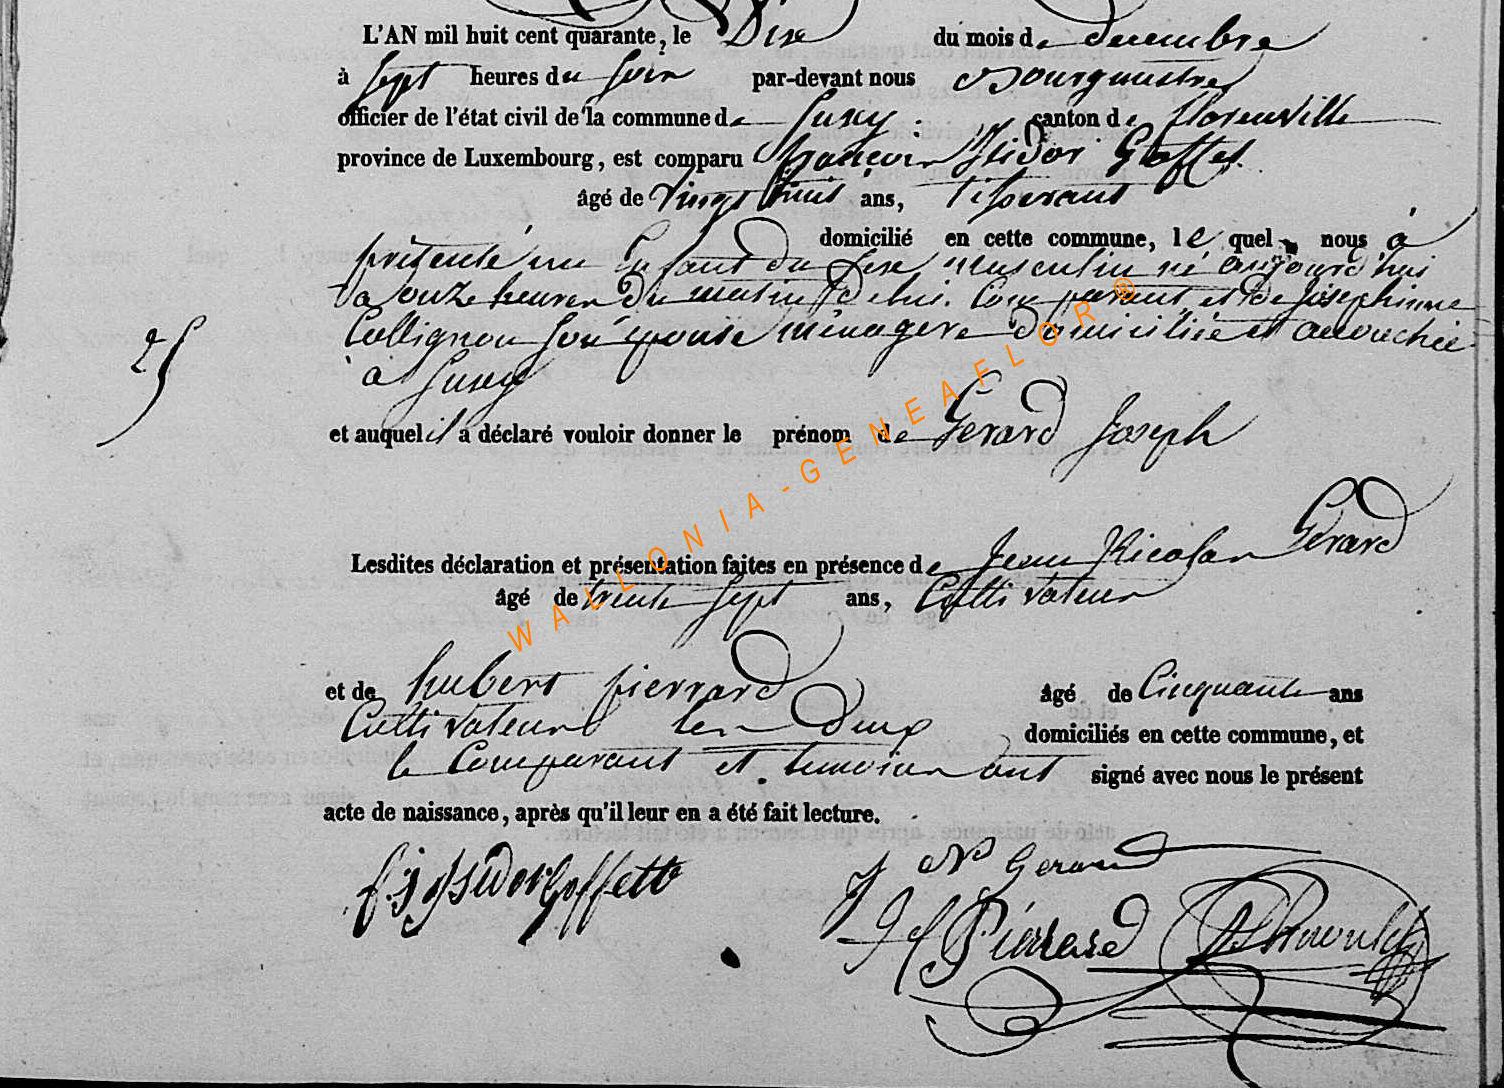 L'AN mil huit cent quarante, le Dix du mois de decembre
à sept heures du soir par-devant nous Bourgmestre
officier de l'état civil de la commune de Suxy : canton de florenville
province de Luxembourg, est comparu françois Isidor Goffet
âgé de vingt huit ans, tisserant
domicilié en cette commune, le quel nous à
présenté un Enfant du sexe masculin né aujourd'hui
à onze heures du matin, de lui Comparant et de Josephinne
Collignon son épouse ménagere Domiciliée et accouchée
à Suxy
25
et auquel il a déclaré vouloir donner le prénom de Gerard Joseph
Lesdites déclaration et présentation faites en présence de Jean Nicolas Gérard
âgé de trente sept ans, Cultivateur
et de hubert pierrard âgé de Cinquante ans
Cultivateur les Deux domiciliés en cette commune, et
le Comparant et temoins ont signé avec nous le présent
acte de naissance, après qu'il leur en a été fait lecture.
f: Isidor Goffette
J N Gerard
H Pierrard
WALLONIA-GENEAFLOR ®